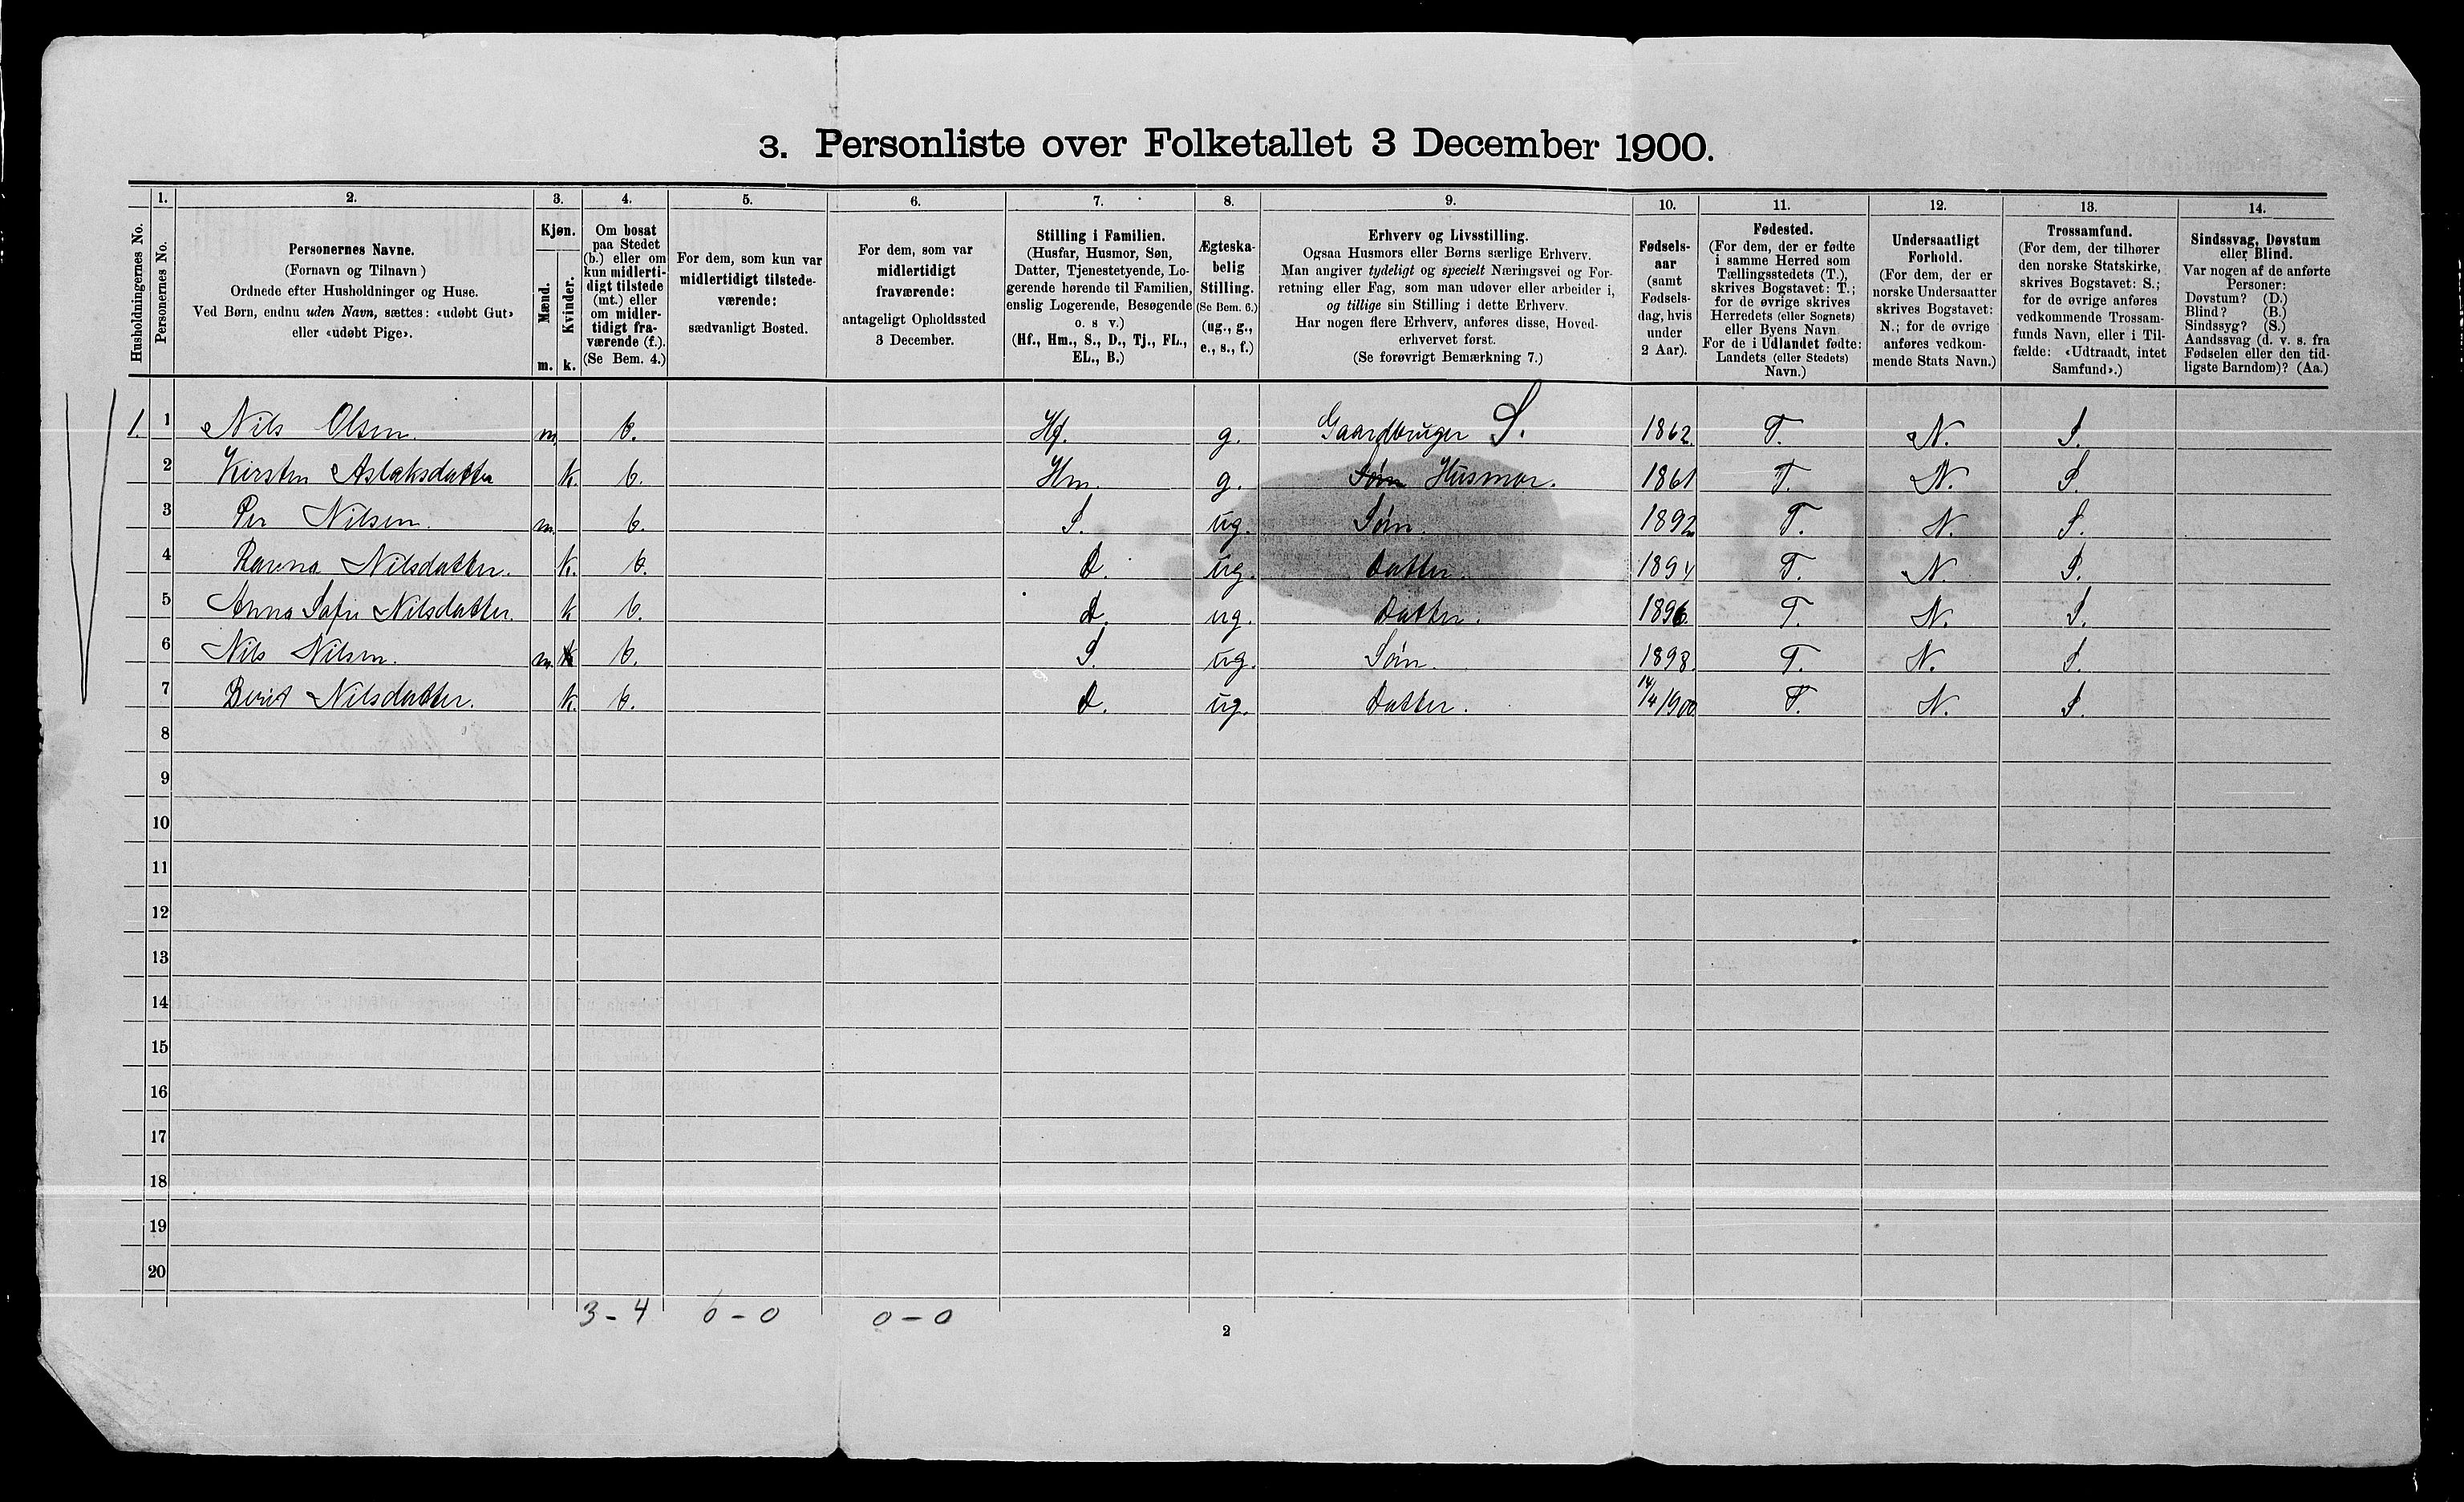 3. Personliste over Folketallet 3 December 1900.
Husholdningernes No.
1.
Personernes No.
2.
Personernes Navne.
(Fornavn og Tilnavn)
Ordnede efter Husholdninger og Huse.
Ved Børn, endnu uden Navn, sættes: «udøbt Gut»
eller «udøbt Pige».
3.
Kjøn.
Mænd.
m.
Kvinder.
k.
4.
Om bosat
paa Stedet
(b.) eller om
kun midlerti-
digt tilstede
(mt.) eller
om midler-
tidigt fra-
værende (f.).
(Se Bem. 4.)
5.
For dem, som kun var
midlertidigt tilstede-
værende:
sædvanligt Bosted.
6.
For dem, som var
midlertidigt
fraværende:
antageligt Opholdssted
3 December.
7.
Stilling i Familien.
(Husfar, Husmor, Søn,
Datter, Tjenestetyende, Lo-
gerende hørende til Familien,
enslig Logerende, Besøgende
o. s v.)
(Hf., Hm., S., D., Tj., FL.,
EL., B.)
8.
Ægteska-
belig
Stilling.
(Se Bem. 6.)
(ug., g.,
e., s., f.)
9.
Erhverv og Livsstilling.
Ogsaa Husmors eller Børns særlige Erhverv.
Man angiver tydeligt og specielt Næringsvei og For-
retning eller Fag, som man udøver eller arbeider i,
og tillige sin Stilling i dette Erhverv.
Har nogen flere Erhverv, anføres disse, Hoved-
erhvervet først.
(Se forøvrigt Bemærkning 7.)
10.
Fødsels-
aar
(samt
Fødsels-
dag, hvis
under
2 Aar).
11.
Fødested.
(For dem, der er fødte
i samme Herred som
Tællingsstedets (T.),
skrives Bogstavet: T.;
for de øvrige skrives
Herredets (eller Sognets)
eller Byens Navn
For de i Udlandet fødte:
Landets (eller Stedets)
Navn.)
12.
Undersaatligt
Forhold.
(For dem, der er
norske Undersaatter
skrives Bogstavet:
N.; for de øvrige
anføres vedkom-
mende Stats Navn.)
13.
Trossamfund.
(For dem, der tilhører
den norske Statskirke,
skrives Bogstavet: S.;
for de øvrige anføres
vedkommende Trossam-
funds Navn, eller i Til-
fælde: «Udtraadt, intet
Samfund».)
14.
Sindssvag, Døvstum
eller Blind.
Var nogen af de anførte
Personer:
Døvstum? (D.)
Blind? (B.)
Sindssyg? (S.)
Aandssvag (d. v. s. fra
Fødselen eller den tid-
ligste Barndom)? (Aa.)
1. 1 Nils Olsen. m. b. Hf. g. Gaardbruger S. 1862. T. N. S.
2 Kirsten Aslaksdatter k. b. Hm. g. Søn Husmor. 1861 T. N. S.
3 Per Nilsen. m. b. S. ug. Søn. 1892 T. N. S.
4 Ravna Nilsdatter. k. b. D. ug. Datter. 1894 T. N. S.
5 Anna Safri Nilsdatter. k b. D. ug. Datter. 1896. T. N. S.
6 Nils Nilsen. m. k b. S. ug. Søn. 1898. T. N. S.
7 Berit Nilsdatter. k. b. D. ug. Datter. 14/4 1900 T. N. S.
8
9
10
11
12
13
14
15
16
17
18
19
20
3 - 4 0 - 0 0 - 0
2